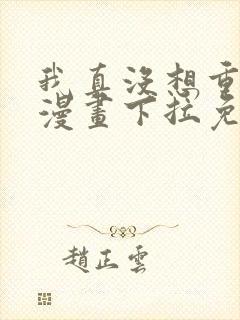 我真没想重
漫畫下拉免
趙正雲